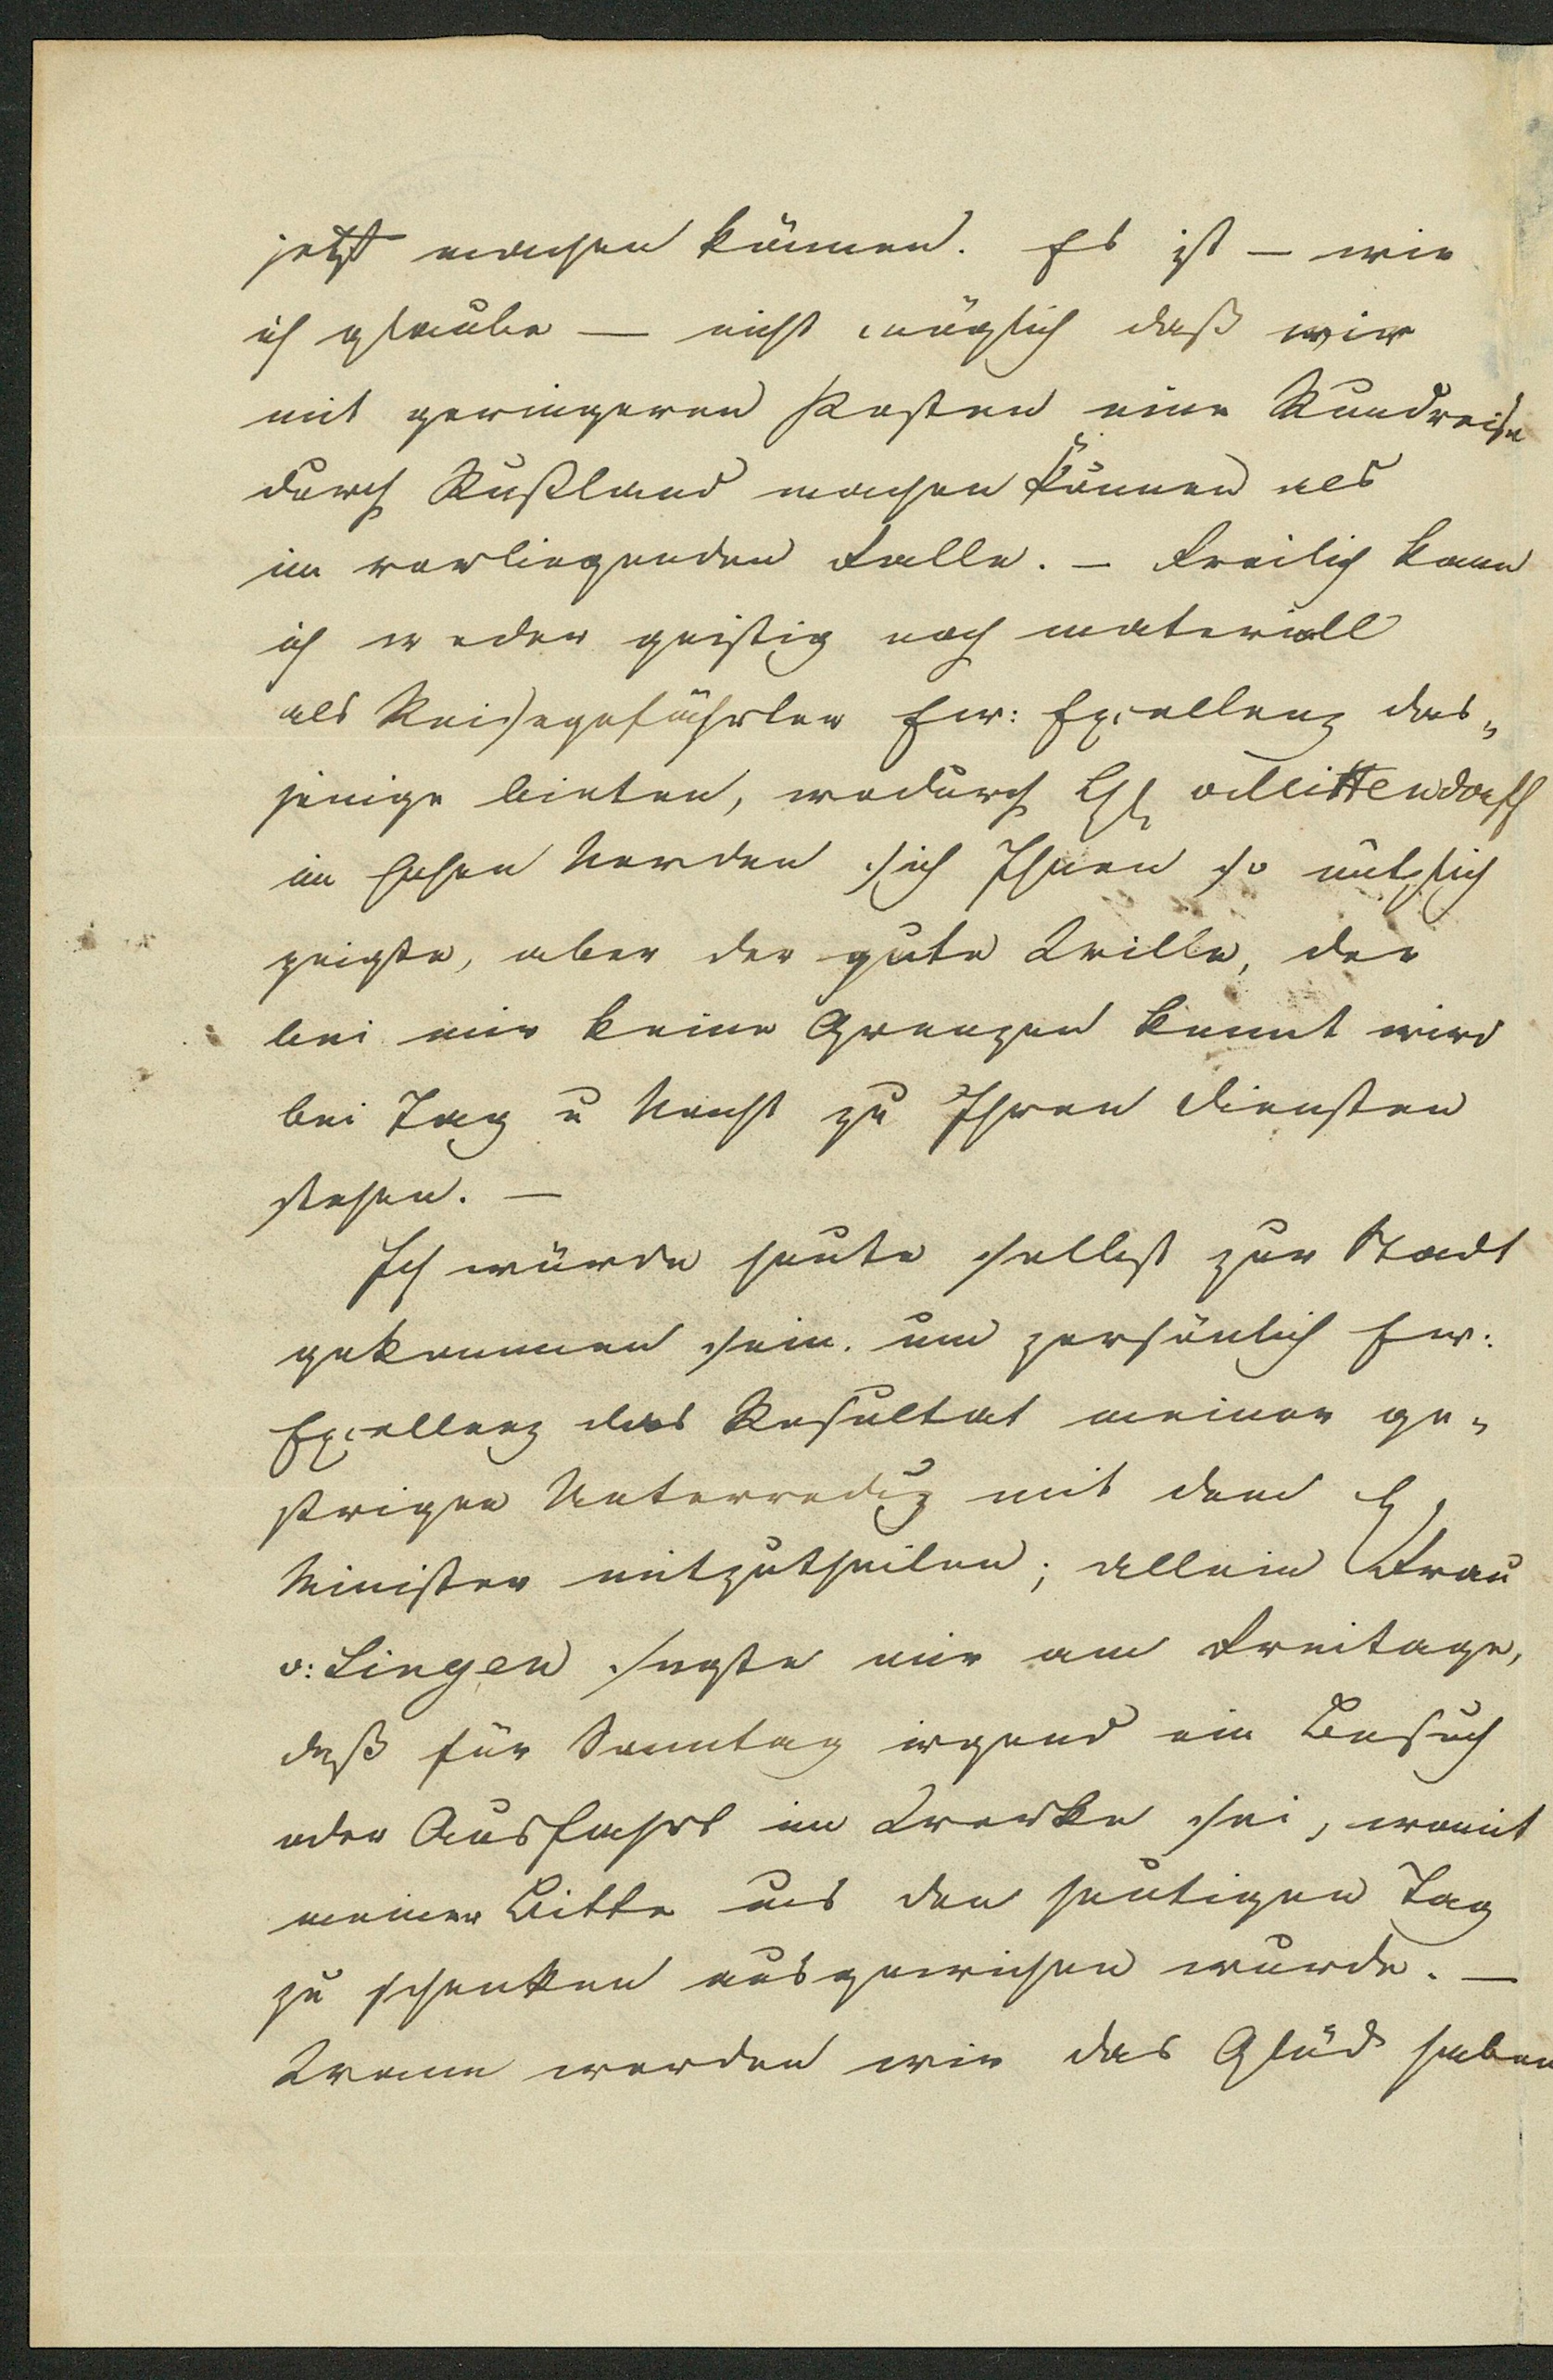 jetzt machen können. Es ist – wie
ich glaube — nicht möglich daß wir
mit geringeren Kosten eine Rundreise
durch Rußland machen können als
im vorliegenden Falle. – Freilich kann
ich weder geistig noch materiell
als Reisegefährten Ew: Excellenz das-
jenige bieten, wodurch H v Middendorff
im hohen Norden sich Ihnen so nützlich
zeigte, aber der gute Wille, der
bei mir keine Grenzen kennt wird
bei Tag u Nacht zu Ihren Diensten
stehen. —
Ich würde heute selbst zur Stadt
gekommen sein. um persönlich Ew:
Excellenz das Resultat meiner ge-
strigen Unterredug mit dem H
Minister mitzutheilen; allein Frau
v: Lingen sagte mir am Freitage,
daß für Sonntag irgend ein Besuch
oder Ausfahrt im Werke sei, womit
meiner Bitte uns den heutigen Tag
zu schenken ausgewichen wurde. —
Wann werden wir das Glück haben